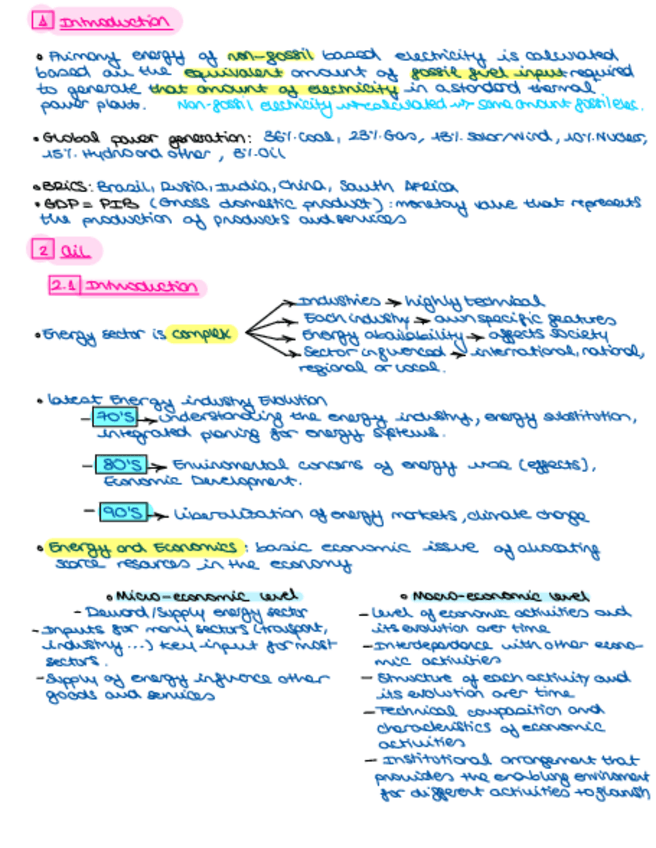 1 Introduction
• Primary energy of non-fossil based electricity is calculated
based on the equivalent amount of fossil fuel input required
to generate that amount of electricity in a standard thermal
power plant. Non-fossil electricity → calculated → same amount fossil elec.
• Global power generation: 36% Coal, 23% Gas, 13% Solar/Wind, 10% Nuclear,
15% Hydro and other, 3% Oil
• BRICS: Brazil, Rusia, India, China, South Africa
• GDP = PIB (Gross domestic product): monetary value that represents
the production of products and services
2 Oil
2.1 Introduction
• Energy sector is complex
Industries → highly technical
Each industry → own specific features
Energy availability → affects society
Sector influenced → international, national,
regional or local.
• Latest Energy industry Evolution
- 70'S → Understanding the energy industry, energy substitution,
integrated planing for energy systems.
- 80'S → Enviromental concerns of energy use (effects),
Economic Development.
- 90'S → Liberalization of energy markets, climate change
• Energy and Economics: basic economic issue of allocating
scarce resources in the economy
• Micro-economic level
- Demand/Supply energy sector
- Inputs for many sectors (transport,
industry...) key-input for most
sectors.
- Supply of energy influence other
goods and services
• Macro-economic level
- Level of economic activities and
its evolution over time
- Interdependance with other econo-
mic activities
- Structure of each activity and
its evolution over time
- Technical composition and
characteristics of economic
activities
- Institutional arrangement that
provides the enabling enviroment
for different activities to